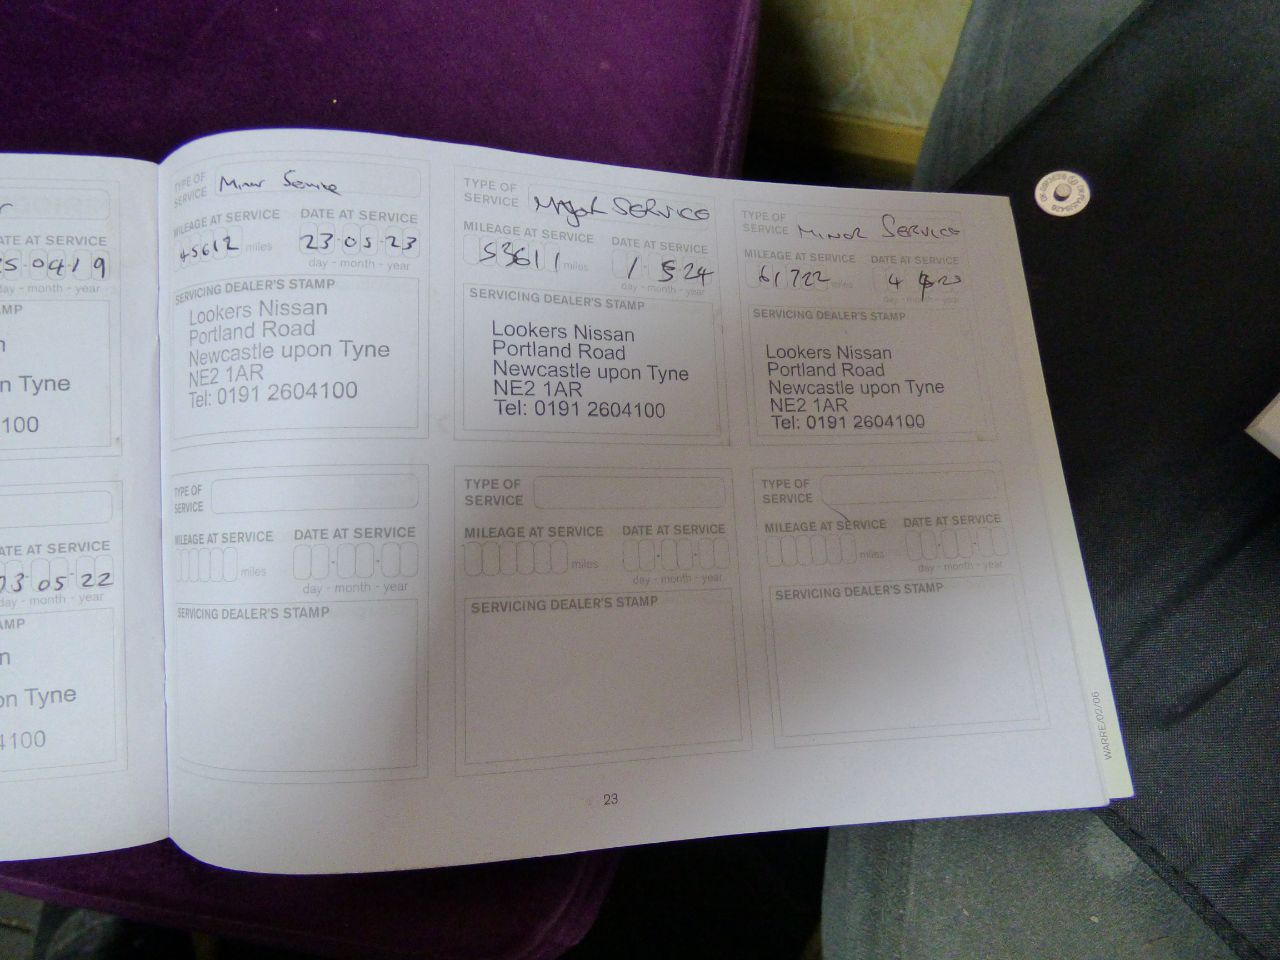 r
ATE AT SERVICE
25·04·19
day - month - year
AMP
n
n Tyne
100
ATE AT SERVICE
03·05·22
day - month - year
AMP
n
on Tyne
4100
TYPE OF
SERVICE
Minor Service
MILEAGE AT SERVICE
DATE AT SERVICE
45612 miles
23·05·23
day - month - year
SERVICING DEALER'S STAMP
Lookers Nissan
Portland Road
Newcastle upon Tyne
NE2 1AR
Tel: 0191 2604100
TYPE OF
SERVICE
Major SERVICE
MILEAGE AT SERVICE
DATE AT SERVICE
53611 miles
1 5 24
day - month - year
SERVICING DEALER'S STAMP
Lookers Nissan
Portland Road
Newcastle upon Tyne
NE2 1AR
Tel: 0191 2604100
TYPE OF
SERVICE
MINOR SERVICE
MILEAGE AT SERVICE
DATE AT SERVICE
61722 miles
4
day - month - year
SERVICING DEALER'S STAMP
Lookers Nissan
Portland Road
Newcastle upon Tyne
NE2 1AR
Tel: 0191 2604100
TYPE OF
SERVICE
MILEAGE AT SERVICE
DATE AT SERVICE
miles
day - month - year
SERVICING DEALER'S STAMP
TYPE OF
SERVICE
MILEAGE AT SERVICE
DATE AT SERVICE
miles
day - month - year
SERVICING DEALER'S STAMP
TYPE OF
SERVICE
MILEAGE AT SERVICE
DATE AT SERVICE
miles
day - month - year
SERVICING DEALER'S STAMP
23
WARRE/02/06